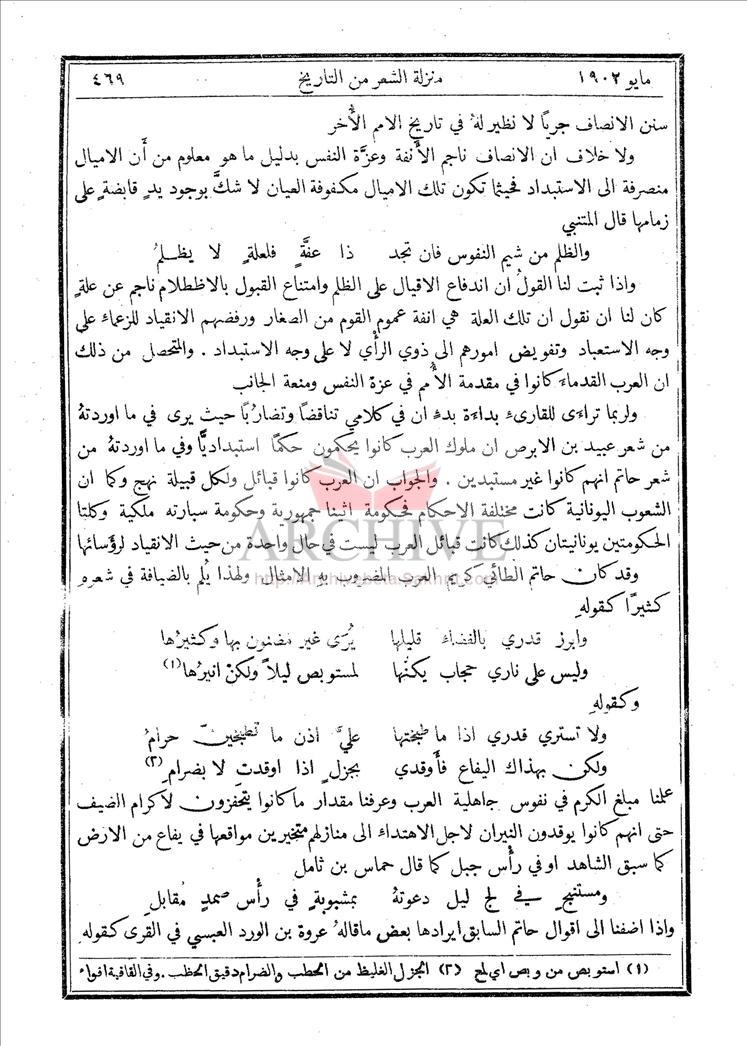 مايو ١٩٠٢ منزلة الشعر من التاريخ ٤٦٩
سنن الانصاف جرياً لا نظير لهُ في تاريخ الامم الأُخر
ولا خلاف ان الانصاف ناجم الأَنفة وعزَّة النفس بدليل ما هو معلوم من أَن الاميال
منصرفة الى الاستبداد فحيثما تكون تلك الاميال مكفوفة العيان لا شكَّ بوجود يدٍ قابضةٍ على
زمامها قال المتنبي
والظلم من شيم النفوس فان تجد ذا عفَّةٍ فلعلةٍ لا يظلمُ
واذا ثبت لنا القولُ ان اندفاع الاقيال على الظلم وامتناع القبول بالاظطلام ناجم عن علةٍ
كان لنا ان نقول ان تلك العلة هي انفة عموم القوم من الصغار ورفضهم الانقياد للزعماء على
وجه الاستعباد وتفويض امورهم الى ذوي الرأْي لا على وجه الاستبداد . والمتحصل من ذلك
ان العرب القدماء كانوا في مقدمة الأُمم في عزة النفس ومنعة الجانب
ولربما تراءَى للقارىءِ بداءَة بدءٍ ان في كلامي تناقضاً وتضارُباً حيث يرى في ما اوردتهُ
من شعر عبيد بن الابرص ان ملوك العرب كانوا يحكمون حكماً استبداديّاً وفي ما اوردتهُ من
شعر حاتم انهم كانوا غير مستبدين . والجواب ان العرب كانوا قبائل ولكل قبيلة نهج وكما ان
الشعوب اليونانية كانت مختلفة الاحكام فحكومة اثينا جمهورية وحكومة سبارته ملكية وكلتا
الحكومتين يونانيتان كذلك كانت قبائل العرب ليست في حال واحدة من حيث الانقياد لرؤَسائها
وقد كان حاتم الطائي كريم العرب المضروب بهِ الامثال ولهذا يُلم بالضيافة في شعرهِ
كثيرًا كقولهِ
وابرز قدري بالفضاء قليلها يُرَى غير مضنون بها وكثيرُها
وليس على ناري حجاب يكنُّها لمستوبص ليلاً ولكنْ انيرُها (١)
وكقولهِ
ولا تستري قدري اذا ما طبختها عليَّ اذن ما تطبخين حرامُ
ولكن بهذاك اليفاع فأَوقدي بجزلٍ اذا اوقدتِ لا بضرامِ (٢)
علمنا مبلغ الكرم في نفوس جاهلية العرب وعرفنا مقدار ما كانوا يتحفزون لاكرام الضيف
حتى انهم كانوا يوقدون النيران لاجل الاهتداء الى منازلهم متخيرين مواقعها في يفاع من الارض
كما سبق الشاهد او في رأْس جبل كما قال حماس بن ثامل
ومستنبح في لج ليل دعوتهُ بمشبوبةٍ في رأْس صمدٍ مُقابلِ
واذا اضفنا الى اقوال حاتم السابق ايرادها بعض ماقالهُ عروة بن الورد العبسي في القرى كقولهِ
(١) استوبص من وبص اي لمع (٢) الجزل الغليظ من الحطب والضرام دقيق الحطب . وفي القافية اقواء
ARCHIVE